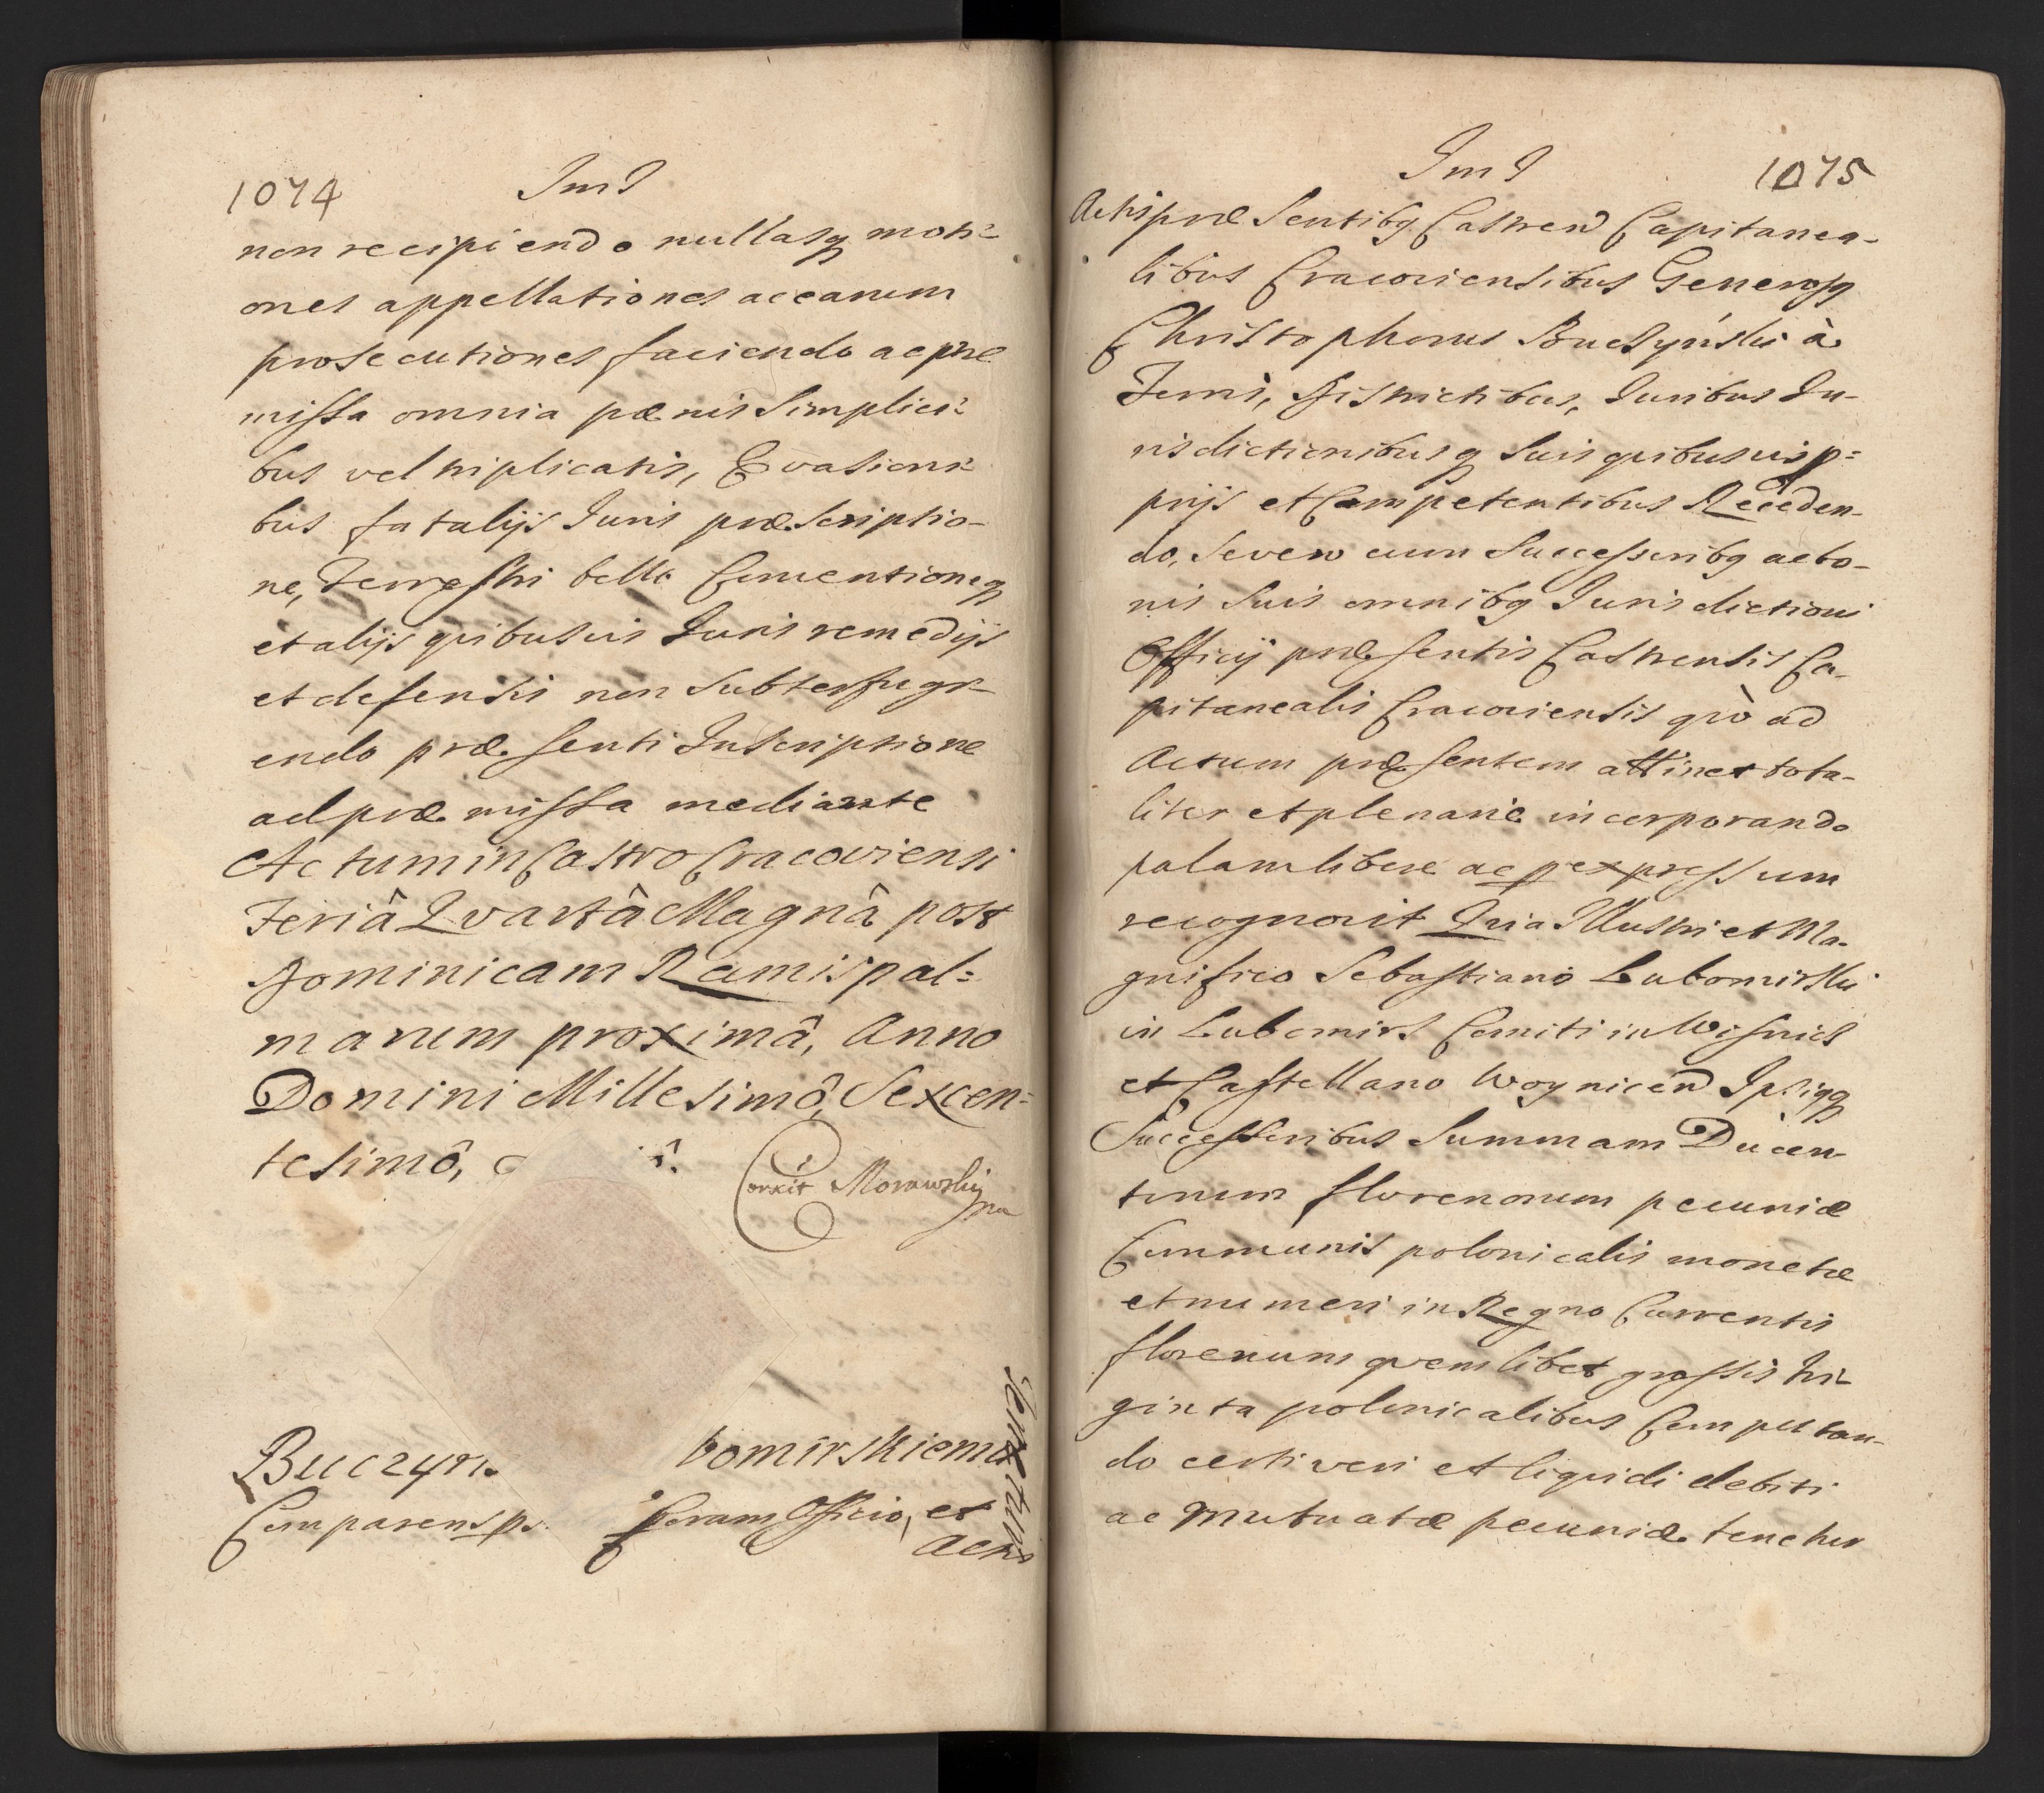 1074
Im I
non recipiendo nullasq moti-
ones appellationes ac earum
prosecutiones faciendo ac præ
missa omnia pænis simplici-
bus vel triplicatis, Evasioni-
bus fatalijs Juris præscriptio-
ne, Terrestri bello Conventioneq
et alijs quibusuis Juris remedijs
et defensis non subterfugi-
endo præsenti Inscriptione
ad præmissa mediante
Actum in Castro Cracoviensi
Feriâ Qvartâ Magnâ post
Dominicam Ramis pal=
marum proximâ, Anno
Domini Millesimô, Sexcen=
tesimô,
Corrxit Morawskij
Buczyn
bomirskiemu
Comparens ps. Coram Officio, et
Actis
Sententum
Im I 1075
Actis præsentibq Castren Capitanea-
libus Cracoviensibus Generosq
Christophorus Buczyński à
Terris, Districtibus, Juribus Ju-
risdictionibusq suis quibusuis p=
prijs et Competentibus Receden-
do, se vero cum Successoribq ac bo-
nis suis omnibq Jurisdictioni
Officij præsentis Castrensis Ca-
pitanealis Cracoviensis qvò ad
Actum præsentem attinet tota-
liter et plenariè incorporando
palam libere ac p expressum
recognovit Qvia Illustri et Ma-
gnifico Sebastiano Lubomirski
in Lubomirs Comiti in Wisnicz
et Castellano Woynicen Ipsiqq
Successoribus Summam Ducen-
torum florenorum pecuniæ
Communis polonicalis monetæ
et numeri in Regno Currentis
florenum qvemlibet grossis tri-
ginta polonicalibus Computan-
do certi veri et liqvidi debiti
ac mutuatæ pecuniæ tenetur